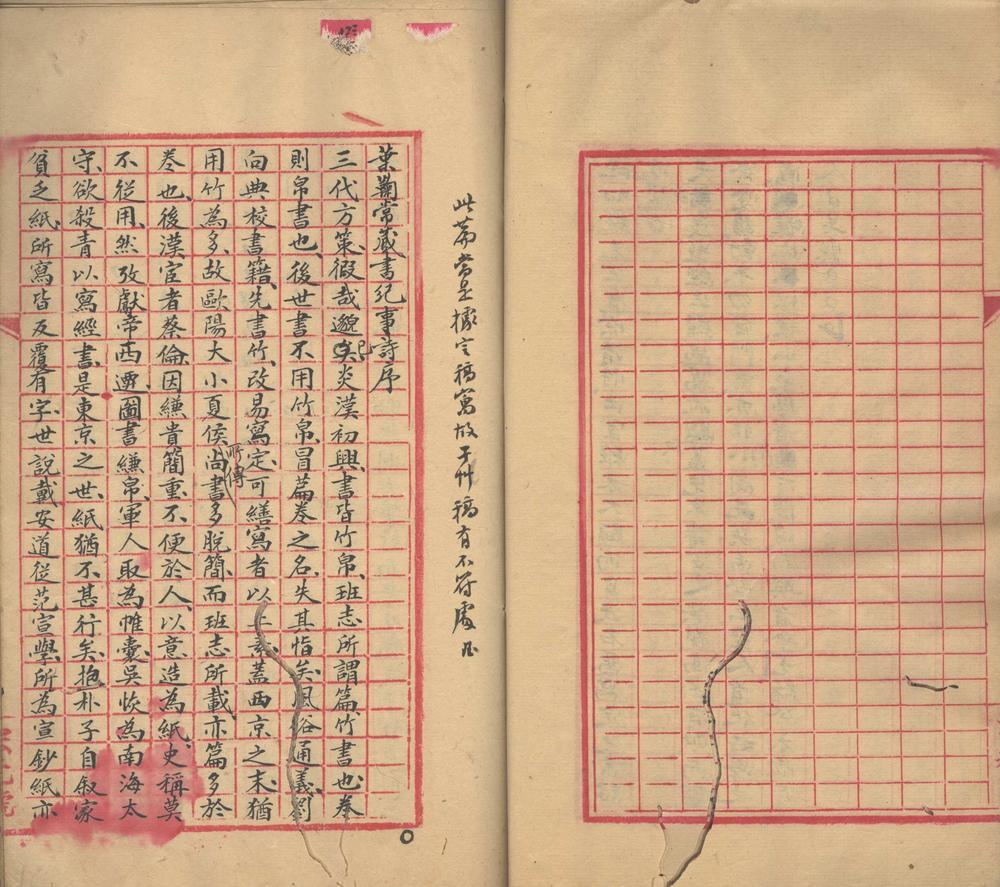 此篇當是據定稿寫故于艸稿有不符處
葉鞠常藏書紀事詩序
三代方策徦哉邈矣炎漢初興書皆竹帛班志所謂篇竹書也卷
則帛書也後世書不用竹帛冒篇卷之名失其恉矣風俗通義劉
向典校書籍先書竹改易寫定可繕寫者以上素蓋西京之末猶
用竹為多故歐陽大小夏侯所傳尚書多脫簡而班志所載亦篇多於
卷也後漢宦者蔡倫因縑貴簡重不便於人以意造為紙史稱莫
不從用然攷獻帝西遷圖書縑帛軍人取為帷囊吳恢為南海太
守欲殺青以寫經書是東京之世紙猶不甚行矣抱朴子自叙家
貧乏紙所寫皆反覆有字世說戴安道從范宣學所為宣鈔紙亦